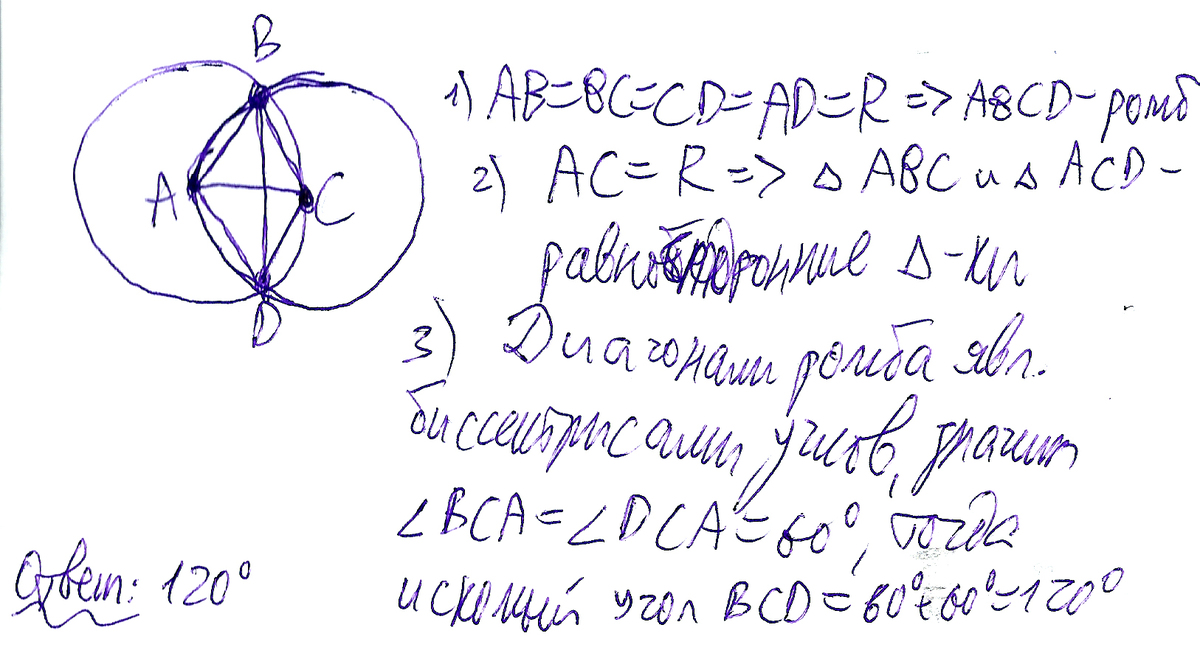 B
A
C
D
1) AB=BC=CD=AD=R => ABCD-ромб
2) AC=R => Δ ABC и Δ ACD-
равносторонние Δ-ки
3) Диагонали ромба явл.
биссектрисами углов, значит
∠BCA=∠DCA=60°, тогда
искомый угол BCD=60°+60°=120°
Ответ: 120°